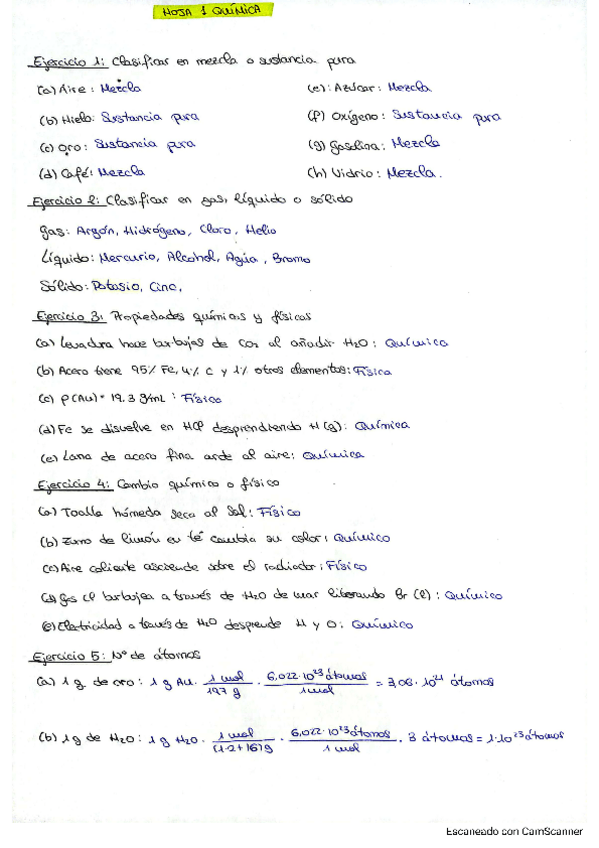 HOJA 1 QUÍMICA
Ejercicio 1: Clasificar en mezcla o sustancia pura
(a) Aire: Mezcla
(e): Azúcar: Mezcla
(b) Hielo: Sustancia pura
(f) Oxígeno: Sustancia pura
(c) Oro: Sustancia pura
(g) Gasolina: Mezcla
(d) Café: Mezcla
(h) Vidrio: Mezcla.
Ejercicio 2: Clasificar en gas, líquido o sólido
Gas: Argón, Hidrógeno, Cloro, Helio
Líquido: Mercurio, Alcohol, Agua, Bromo
Sólido: Potasio, Cinc,
Ejercicio 3: Propiedades químicas y físicas
(a) Levadura hace burbujas de CO2 al añadir H2O: Química
(b) Acero tiene 95% Fe, 4% C y 1% otros elementos: Física
(c) ρ(Au) = 19.3 g/mL: Físico
(d) Fe se disuelve en HCl desprendiendo H(g): Química
(e) Lana de acero fina arde al aire: Química
Ejercicio 4: Cambio químico o físico
(a) Toalla húmeda seca al Sol: Físico
(b) Zumo de limón en té cambia su color: Químico
(c) Aire caliente asciende sobre el radiador: Físico
(d) Gas Cl burbujea a través de H2O de mar liberando Br (l): Químico
(e) Electricidad a través de H2O desprende H y O: Químico
Ejercicio 5: Nº de átomos
(a) 1 g de oro: 1 g Au · 1 mol / 197 g · 6,022·10^23 átomos / 1 mol = 3,06·10^21 átomos
(b) 1 g de H2O: 1 g H2O · 1 mol / (1·2+16) g · 6,022·10^23 átomos / 1 mol · 3 átomos = 1·10^23 átomos
Escaneado con CamScanner